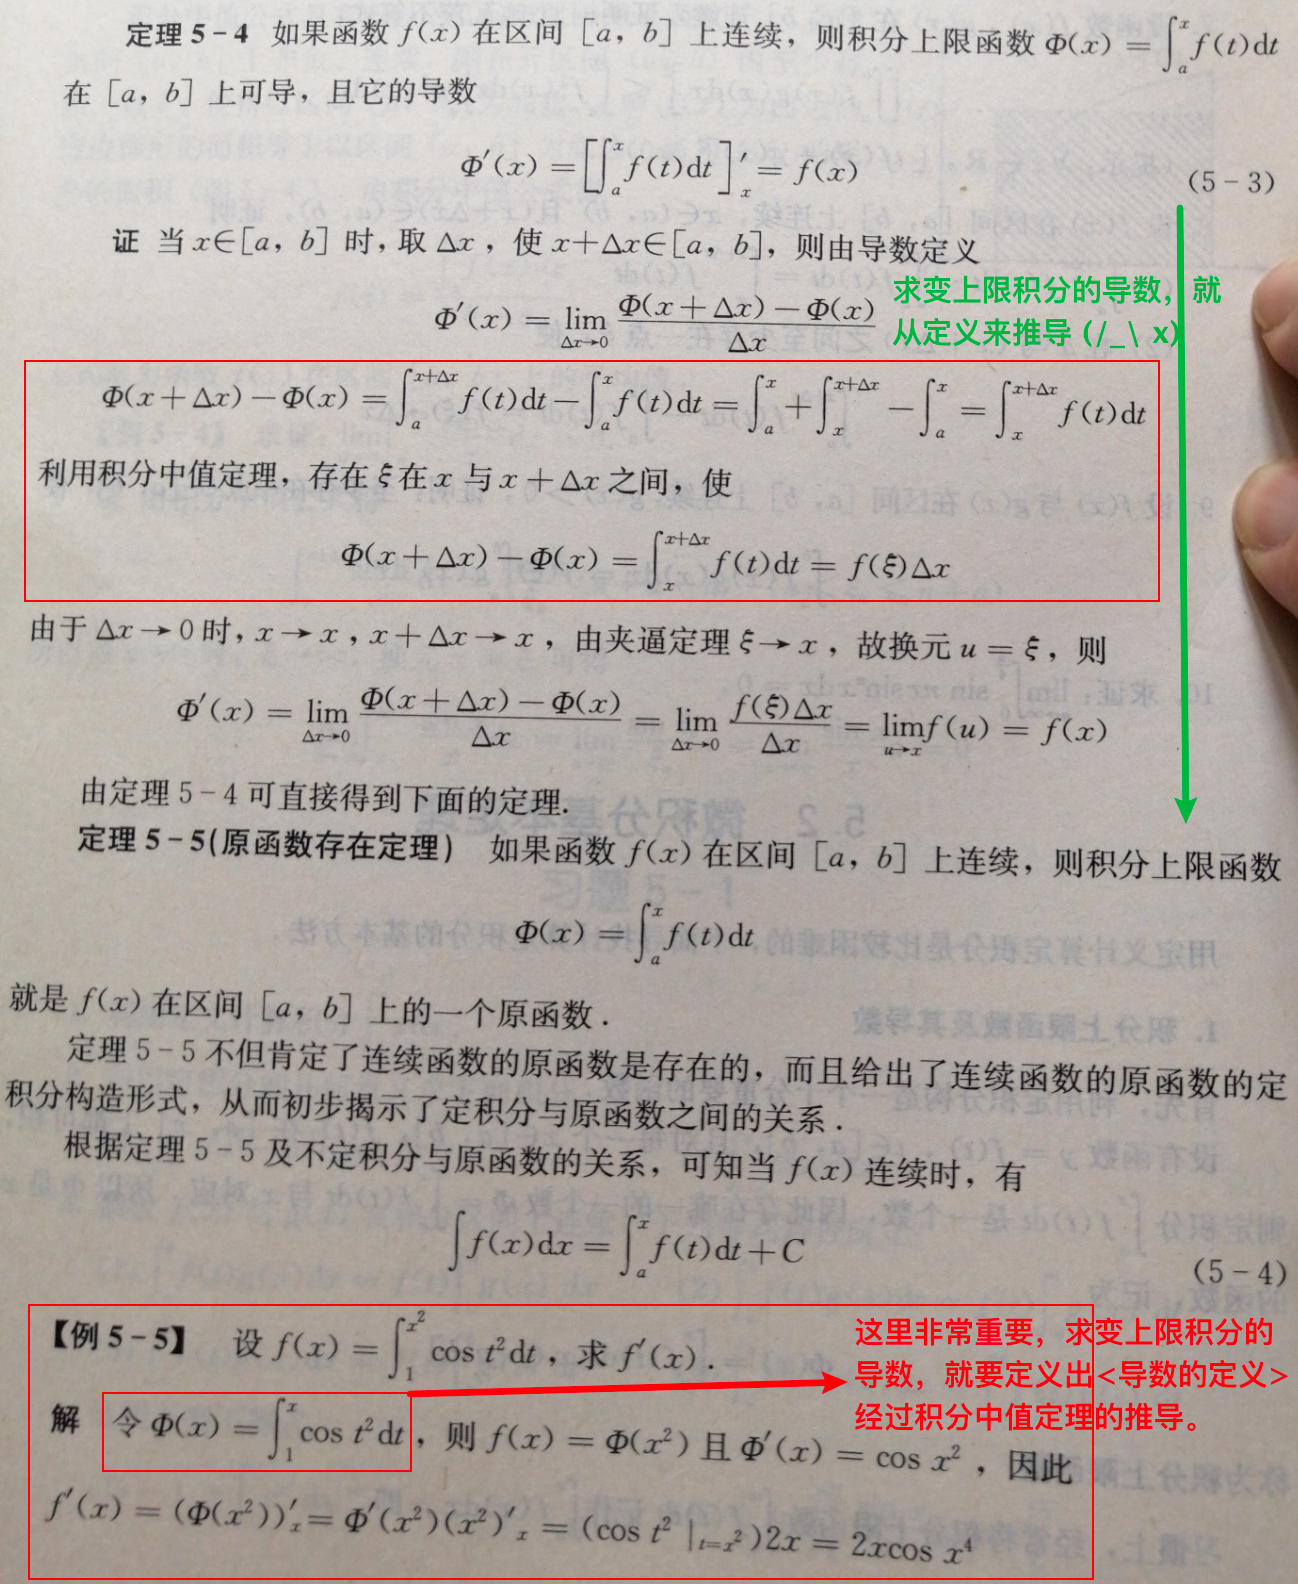 定理 5-4 如果函数 f(x) 在区间 [a, b] 上连续，则积分上限函数 Φ(x) = ∫ₐˣ f(t)dt
在 [a, b] 上可导，且它的导数
Φ′(x) = [∫ₐˣ f(t)dt]′ₓ = f(x)
(5-3)
证 当 x∈[a, b] 时, 取 Δx , 使 x+Δx∈[a, b]，则由导数定义
Φ′(x) = lim_{Δx→0} (Φ(x+Δx)-Φ(x))/Δx
求变上限积分的导数，就
从定义来推导 (/_\ x)
Φ(x+Δx)-Φ(x) = ∫_a^{x+Δx} f(t)dt - ∫_a^x f(t)dt = ∫_a^x + ∫_x^{x+Δx} - ∫_a^x = ∫_x^{x+Δx} f(t)dt
利用积分中值定理，存在 ξ 在 x 与 x+Δx 之间，使
Φ(x+Δx)-Φ(x) = ∫_x^{x+Δx} f(t)dt = f(ξ)Δx
由于 Δx→0 时, x→x , x+Δx→x ，由夹逼定理 ξ→x ，故换元 u = ξ，则
Φ′(x) = lim_{Δx→0} (Φ(x+Δx)-Φ(x))/Δx = lim_{Δx→0} f(ξ)Δx/Δx = lim_{u→x} f(u) = f(x)
由定理 5-4 可直接得到下面的定理.
定理 5-5(原函数存在定理) 如果函数 f(x) 在区间 [a, b] 上连续，则积分上限函数
Φ(x) = ∫_a^x f(t)dt
就是 f(x) 在区间 [a, b] 上的一个原函数.
定理 5-5 不但肯定了连续函数的原函数是存在的，而且给出了连续函数的原函数的定
积分构造形式，从而初步揭示了定积分与原函数之间的关系.
根据定理 5-5 及不定积分与原函数的关系，可知当 f(x) 连续时，有
∫f(x)dx = ∫_a^x f(t)dt + C
(5-4)
【例 5-5】 设 f(x) = ∫_1^{x²} cos t² dt , 求 f′(x).
这里非常重要，求变上限积分的
导数，就要定义出<导数的定义>
经过积分中值定理的推导。
解 令 Φ(x) = ∫_1^x cos t² dt，则 f(x) = Φ(x²) 且 Φ′(x) = cos x² ，因此
f′(x) = (Φ(x²))′ₓ = Φ′(x²)(x²)′ₓ = (cos t² |_{t=x²})2x = 2xcos x⁴